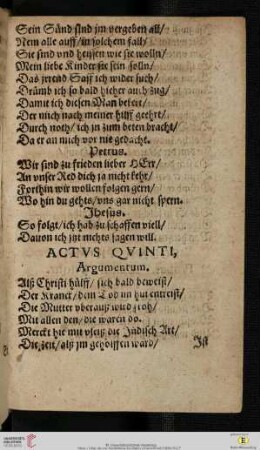 Sein Sünd sind jm vergeben all/
Nem alle auff/ in solchem fall/
Sie sind vnd heissen wie sie wolln/
Mein liebe Kinder sie sein solln/
Das irrend Saff ich wider such/
Drümb ich so bald hieher auch zug/
Damit ich diesen Man bekert/
Der mich nach meiner hilff geehrt/
Durch noth/ ich jn zum beten bracht/
Da er an mich vor nie gedacht.
Petrus.
Wir sind zu frieden lieber HErr/
An vnser Red dich ja nicht kehr/
Forthin wir wollen folgen gern/
Wo hin du gehts/ vns gar nicht sperrn.
Jhesus.
So folgt/ ich hab zu schaffen viell/
Dauon ich jtzt nichts sagen will.
ACTVS QVINTI,
Argumentum.
Alß Christi hülff/ sich bald beweist/
Der Kranck/ dem Tod
Die Mutter vberauß wird froh/
Mit allen den/ die waren do.
Merckt hie mit vleiß die Jüdisch Art/
Die zeit/ alß jm geholffen ward/
Ist